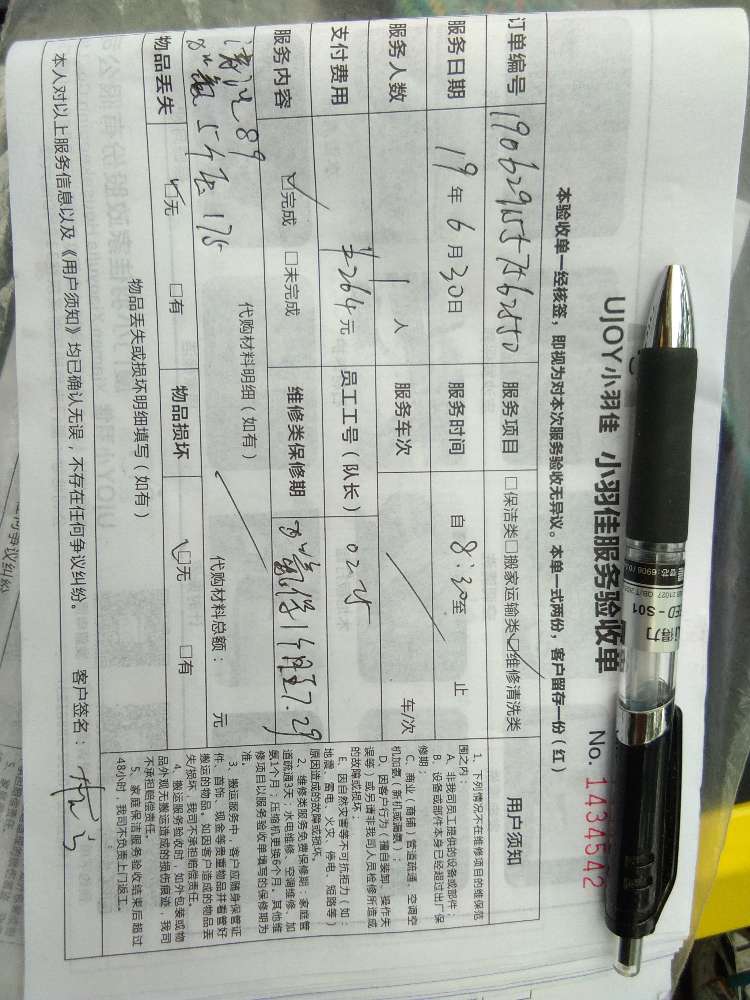 UJOY小羽佳 小羽佳服务验收单
No. 1434542
本验收单一经核签，即视为对本次服务验收无异议。本单一式两份，客户留存一份（红）
订单编号 服务项目 □保洁类□搬家运输类☑维修清洗类
服务日期 19年6月30日 服务时间 自8:30至 止
服务人数 1人 服务车次 车/次
支付费用 ¥264元 员工工号（队长） 0225
服务内容 ☑完成 □未完成 维修类保修期 加氟保1个月至7.29
代购材料明细（如有） 代购材料总额： 元
清洗89
加氟5个压175
物品丢失 ☑无 □有 物品损坏 ☑无 □有
物品丢失或损坏明细填写（如有）
本人对以上服务信息以及《用户须知》均已确认无误，不存在任何争议纠纷。 客户签名：
用户须知
1、下列情况不在维修项目的维保范
围之内：
A、非我司员工提供的设备或部件；
B、设备或部件本身已经超过出厂保
修期；
C、商业（商铺）管道疏通、空调空
机加氨（新机或漏氨）；
D、因客户行为（擅自装卸、操作失
误等）或另请非我司人员检修所造成
的故障或损坏；
E、因自然灾害等不可抗拒力（如：
地震、雷电、火灾、停电、短路等）
原因造成的故障或损坏。
2、维修类服务免费保修期：家庭管
道疏通3天；水电维修、空调维修、加
氨1个月；压缩机更换6个月。其他维
修项目以服务验收单填写的保修期为
准。
3、搬运服务中，客户应随身保管证
件、首饰、现金等贵重物品并看管好
搬运的物品。如因客户造成的物品丢
失/损坏，我司不承担赔偿责任。
4、搬运服务验收时，如外包装或物
品外观无搬运造成的损伤痕迹，我司
不承担赔偿责任。
5、家庭保洁服务验收结束后超过
48小时，我司不负责上门返工。
得力